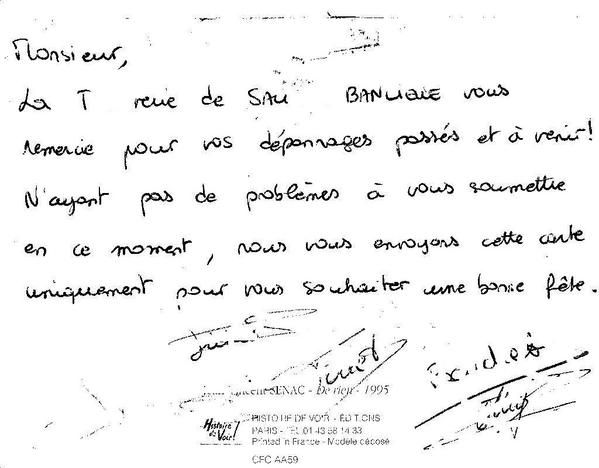 Monsieur,
La T revue de SAU BANLIEUE vous
remercie pour vos dépannages passés et à venir!
N'ayant pas de problèmes à vous soumettre
en ce moment, nous vous envoyons cette carte
uniquement pour vous souhaiter une bonne fête.
SENAC - De rien - 1995
Histoire de Voir!
HISTOIRE DE VOIR - EDITIONS
PARIS - TEL 01 43 58 14 33
Printed in France - Modèle déposé
CFC AA59